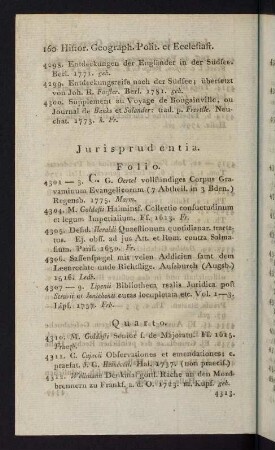 160 Histor. Geograph. Polit. et Ecclesiast.
4298. Entdeckungen der Engländer in der Südsee.
Berl. 1771. geb.
4299. Entdeckungsreise nach der Südsee; übersetzt
von Joh. R. Forster. Berl. 1781. geb.
4300. Supplement au Voyage de Bougainville, ou
Journal de Banks et Solander: trad. p. Freville. Neu-
chat. 1773. h. Fr.
Jurisprudentia.
Folio.
4301 — 3. C. G. Oertel vollständiges Corpus Gra-
vaminum Evangelicorum (7 Abtheil. in 3 Bden.)
Regensb. 1775. Marm.
4304. M. Goldasti Haiminsf. Collectio consuetudinum
et legum Imperialium. Ff. 1613. Fr.
4305. Desid. Heraldi Quaestionum quotidianar. tracta-
tus. Ej. obss. ad jus Att. et Rom. contra Salma-
sium. Paris. 1650. Fr.
4306. Sassenspegel mit velen Addicien samt dem
Leenrechte unde Richtstige. Ausburch (Augsb.)
1516. Ledb.
4307 — 9. Lipenii Bibliotheca realis Juridica post
Struvii et Jenichenii curas locupletam etc. Vol. 1—3.
Lips. 1757. Frb.
Quarto.
4310. M. Goldasti Senior f. de Majorat. Ff. 1615.
Franzb.
4311. C. Cujacii Observationes et emendationes c.
praefat. J. G. Heineccii. Hal. 1737. (non praecis.)
4312. Wellmann Denkmal gottl. Rache an den Mord-
brennern zu Frankf. a. d. O. 1723. m. Kupf. geb.
4313.